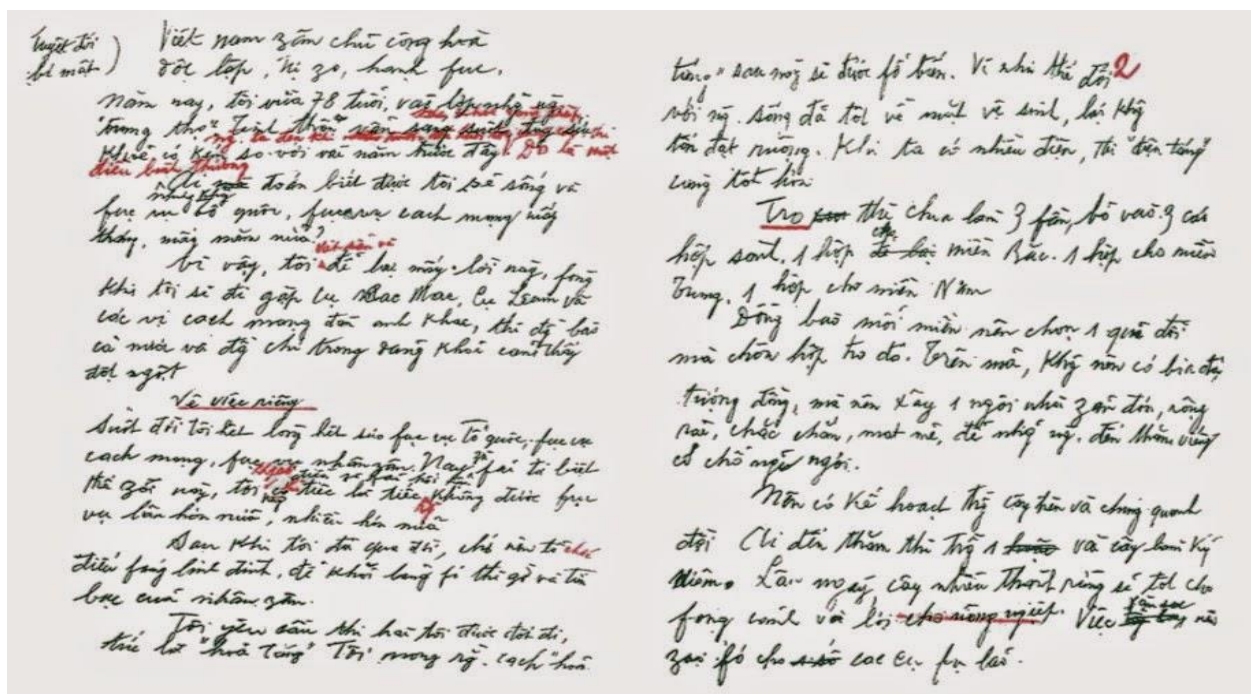 Tuyệt đối
bí mật)
Việt nam zân chủ cộng hoà
độc lập, tự zo, hạnh fúc.
Năm nay, tôi vừa 78 tuổi, vào lớp nhữg ng.
"trung thọ". Tinh thần vẫn sáng suốt, thân thể
Khoẻ, có kém so với vài năm trước đây. Đó là một
điều bình thường
Ai mà đoán biết được tôi sẽ sống và
fục vụ tổ quốc, fục vụ cách mạng mấy
tháng, mấy năm nữa?
Vì vậy, tôi viết sẵn để lại mấy lời này, fòng
khi tôi sẽ đi gặp cụ Các Mác, Cụ Lênin và
các vị cách mạng đàn anh khác, thì đg bào
cả nước và đg chí trong đảng khỏi cảm thấy
đột ngột
Về việc riêng
Suốt đời tôi hết lòng hết sức fục vụ Tổ quốc, fục vụ
cách mạng, fục vụ nhân zân. Nay zù fải từ biệt
thế zới này, tôi không có điều gì fải hối hận,
chỉ tiếc là tiếc rằng không được fục
vụ lâu hơn nữa, nhiều hơn nữa
Sau khi tôi đã qua đời, chớ nên tổ chức
điếu fúng linh đình, để khỏi lãng fí thì giờ và tiền
bạc của nhân zân.
Tôi yêu cầu thi hài tôi được đốt đi,
tức là "hoả táng". Tôi mong rg. cách "hoả
2
táng" sau này sẽ được fổ biến. Vì như thế đối
với ng. sống đã tốt về mặt vệ sinh, lại khg
tốn đất ruộng. Khi ta có nhiều điện, thì "điện táng"
càng tốt hơn.
Tro thì chia làm 3 fần, bỏ vào 3 cái
hộp sành. 1 hộp cho miền Bắc. 1 hộp cho miền
Trung. 1 hộp cho miền Nam
Đồng bào mỗi miền nên chọn 1 quả đồi
mà chôn hộp tro đó. Trên mả, khg nên có bia đá
tượng đồng, mà nên xây 1 ngôi nhà zản đơn, rộng
rãi, chắc chắn, mát mẻ, để nhữg ng. đến thăm viếng
có chỗ nghỉ ngơi.
Nên có kế hoạch trg cây trên và chung quanh
đồi. Ai đến thăm thì trg 1 vài cây làm kỷ
niệm. Lâu ngày, cây nhiều thành rừng sẽ tốt cho
fong cảnh và lợi cho nông ngiệp. Việc săn sóc nên
zao fó cho các cụ fụ lão.